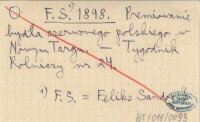 F. S.¹) 1898. Premiowanie
bydła czerwonego polskiego w
Nowym Targu. — Tygodnik
Rolniczy nr 24.
¹) F. S. = Feliks
BT/014/0093